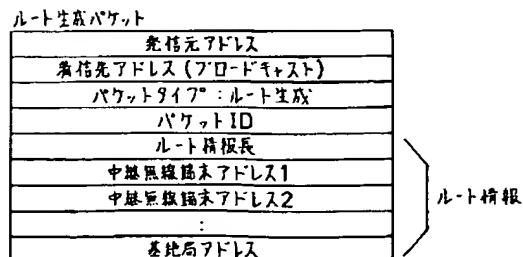 ルート生成パケット
発信元アドレス
着信先アドレス(ブロードキャスト)
パケットタイプ:ルート生成
パケットID
ルート情報長
中継無線端末アドレス1
中継無線端末アドレス2
:
基地局アドレス
ルート情報